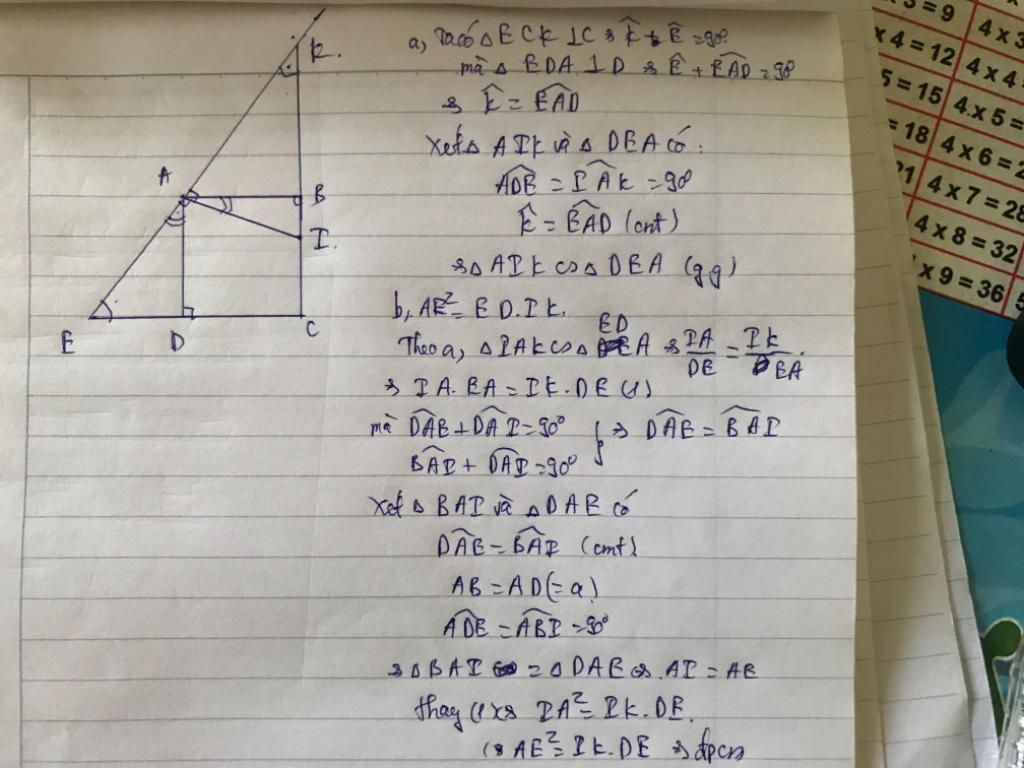 a, Ta có △ECK ⊥ C ⇒ K̂ + Ê = 90°
mà △EDA ⊥ D ⇒ Ê + EAD = 90
⇒ K̂ = EAD
Xét △ AIK và △ DEA có:
ADE = IAK = 90
K̂ = EAD (cmt)
⇒ △ AIK ∽ △ DEA (gg)
b, AE² = ED.IK.
Theo a, △ IAK ∽ △ EDA ⇒ IA/DE = IK/EA.
⇒ IA.EA = IK.DE (1)
mà DAE + DAI = 90° } ⇒ DAE = BAI
BAI + DAI = 90°
Xét △ BAI và △ DAE có
DAE = BAI (cmt)
AB = AD (= a)
ADE = ABI = 90°
⇒ △ BAI = △ DAE ⇒ AI = AE
thay (1) ⇒ IA² = IK.DE.
⇒ AE² = IK.DE ⇒ đpcm
K.
A
B
I.
E
D
C
x 3 = 9
x 4 = 12
5 = 15
= 18
21
4 x 3
4 x 4
4 x 5 =
4 x 6 = 2
4 x 7 = 28
4 x 8 = 32
x 9 = 36